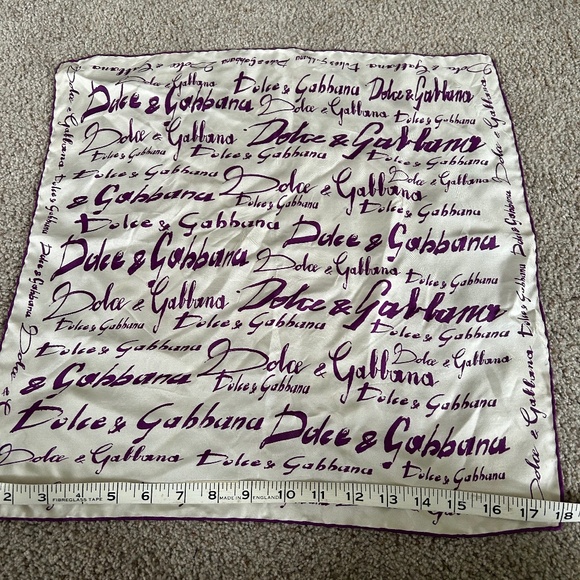 Dolce & Gabbana Dolce & Gabbana Dolce & Gabbana Dolce & Gabbana Dolce & Gabbana
Dolce & Gabbana Dolce & Gabbana Dolce & Gabbana
Dolce & Gabbana Dolce & Gabbana Dolce & Gabbana
Dolce & Gabbana Dolce & Gabbana
Dolce & Gabbana
Dolce & Gabbana Dolce & Gabbana Dolce & Gabbana
& Gabbana Dolce & Gabbana
Dolce & Gabbana Dolce & Gabbana
Dolce & Gabbana Dolce & Gabbana
Dolce & Gabbana Dolce & Gabbana
Dolce & Gabbana Dolce & Gabbana
Dolce & Gabbana Dolce & Gabbana Dolce & Gabbana
Dolce & Gabbana Dolce & Gabbana Dolce & Gabbana
& Gabbana Dolce & Gabbana
Dolce & Gabbana Dolce & Gabbana
Dolce & Gabbana Dolce & Gabbana Dolce & Gabbana
2 3 4 5 6 7 8 9 10 11 12 13 14 15 16 17 18
FIBREGLASS TAPE MADE IN ENGLAND